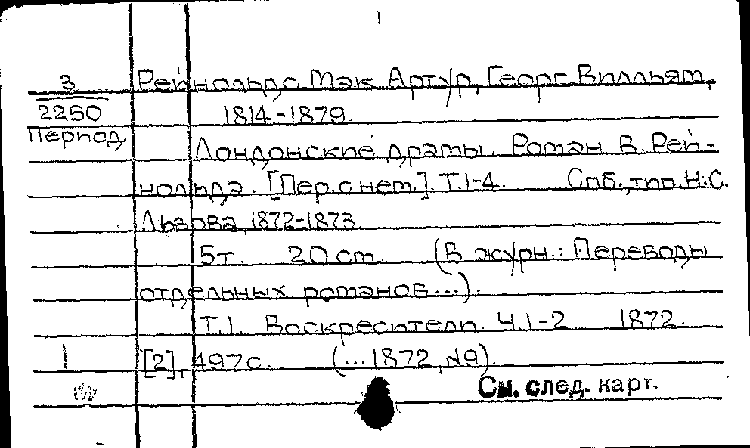 3
2250
Период
Рейнольдс Мэк Артур, Георг Вилльям,
1814-1879.
Лондонские драмы. Роман В. Рей-
нольдэ. [Пер. с нем.]. Т.1-4. Спб., тип. Н.С.
Львова, 1872-1873
5т. 20 cm. (В журн.: Переводы
отдельных романов...).
Т.1. Воскресители. Ч.1-2 1872.
1 [2], 497 с. (...1872, №9).
См. след. карт.